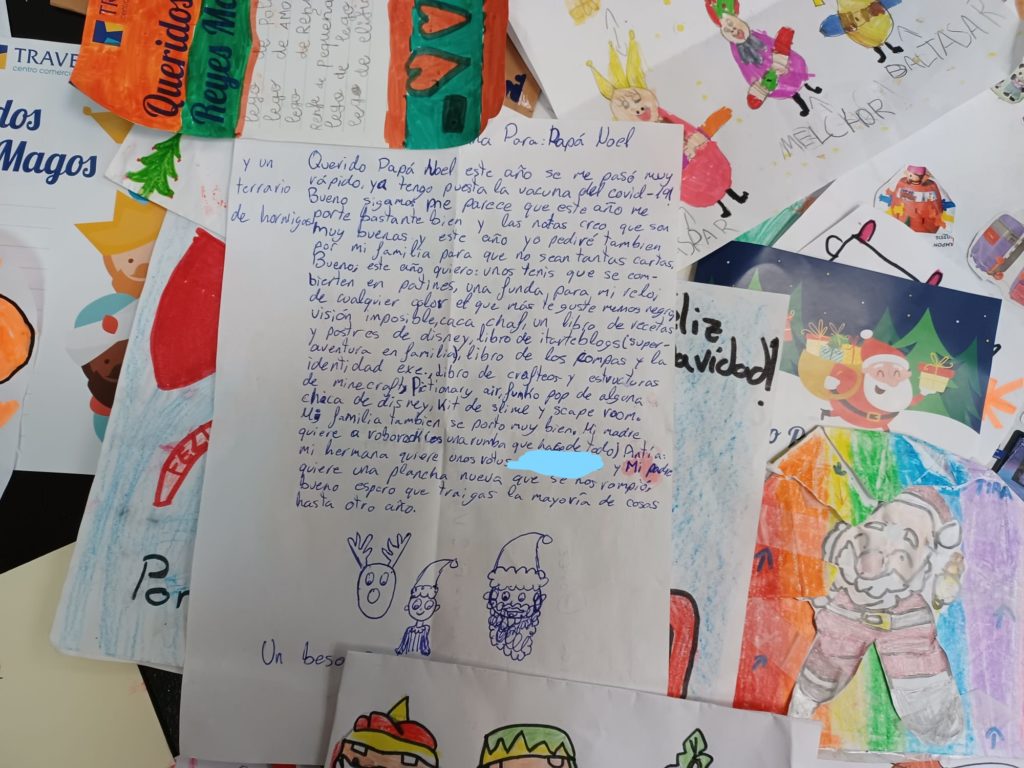 TRAVE
centro comerc
dos
Magos
Queridos
Reyes Ma
lego de AMO
lego de Re
lego de
MELCKOR
BALTASAR
SPAR
Para: Papá Noel
Querido Papá Noel este año se me pasó muy
rápido, ya tengo puesta la vacuna del covid-19
Bueno sigamos me parece que este año me
porte bastante bien y las notas creo que son
muy buenas y este año yo pediré tambien
por mi familia para que no sean tantas cartas.
Bueno, este año quiero: unos tenis que se com-
bierten en patines, una funda para mi reloj
de cualquier color el que más te guste menos negro,
visión imposible, caca chaf, un libro de recetas
y postres de disney, libro de itarteblogs (super-
aventura en familia), libro de los rompas y la
identidad exe, libro de crafteos y estructuras
de minecraft, Pictionary air, funko pop de alguna
chica de disney, kit de slime y scape room.
Mi familia tambien se porto muy bien, Mi madre
quiere a roborock (es una rumba que hace de todo) Antia:
mi hermana quiere unos y Mi padre
quiere una plancha nueva que se nos rompio,
bueno espero que traigas la mayoría de cosas
hasta otro año.
y un
terrario
de hormigas
Un beso
liz
avidad!
Por